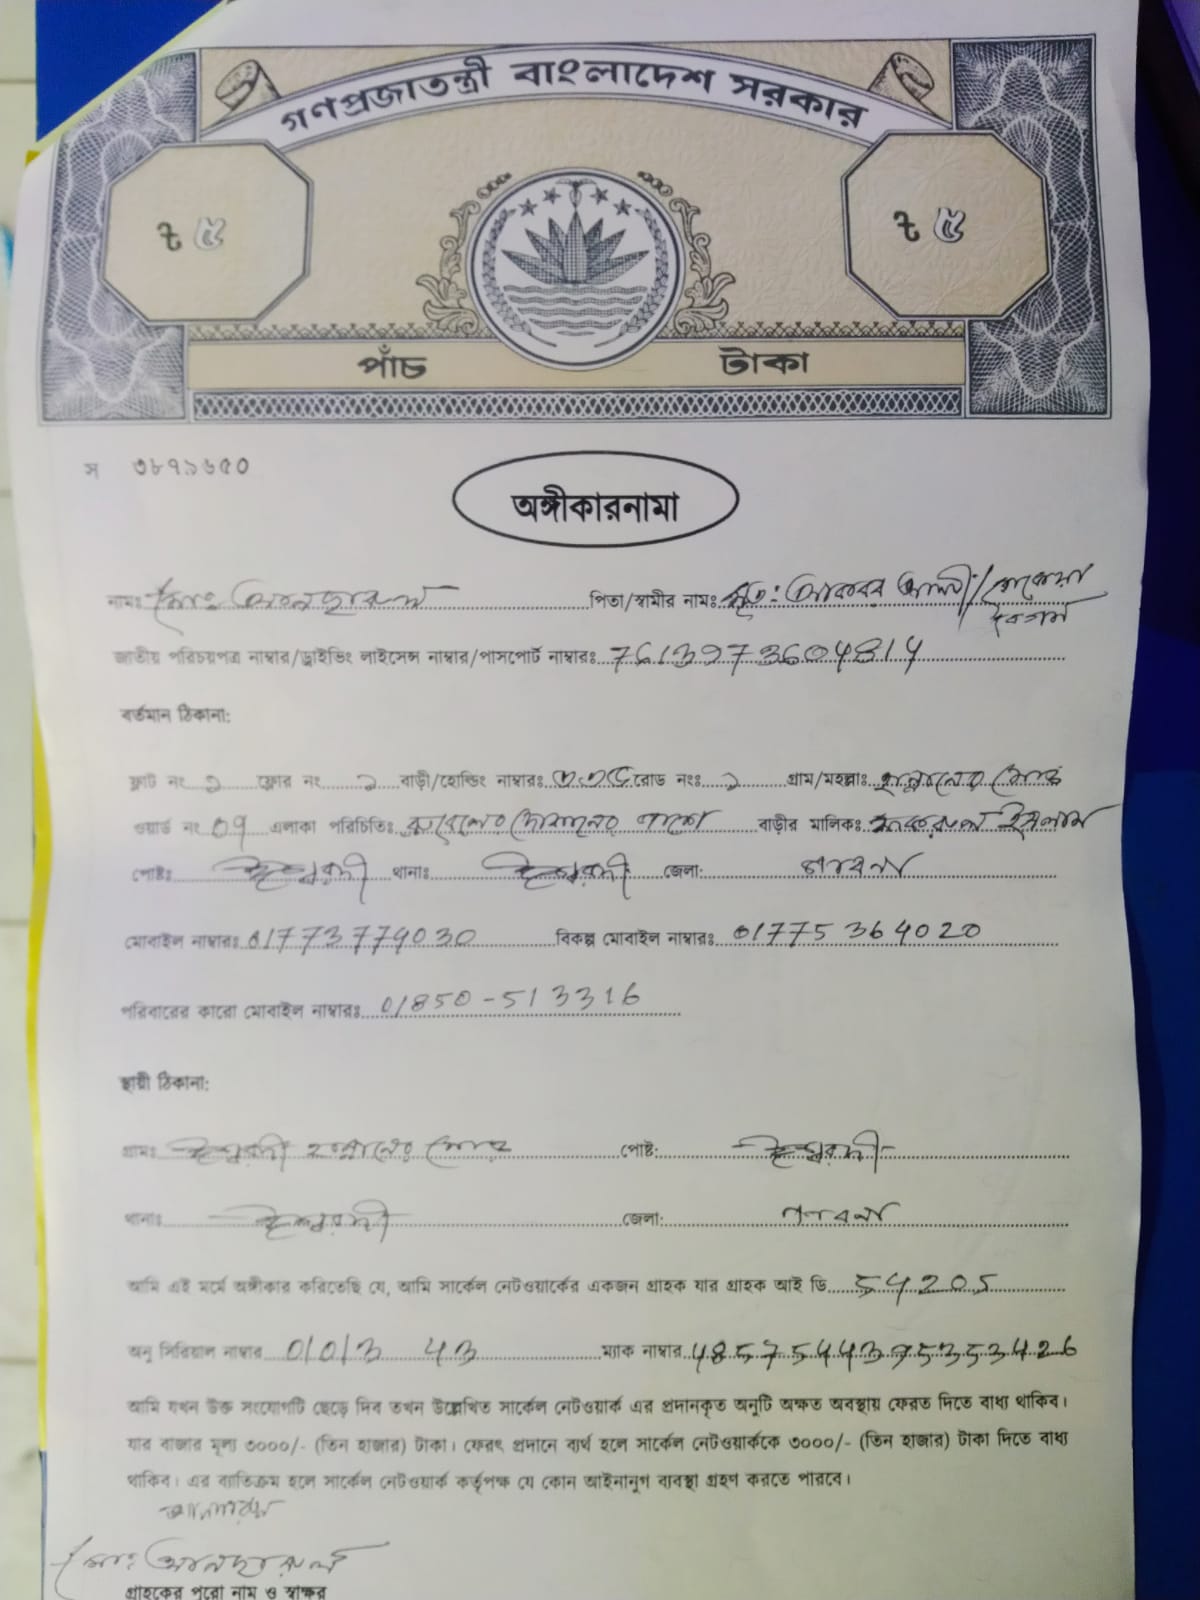 গণপ্রজাতন্ত্রী বাংলাদেশ সরকার
৳ ৫ ৳ ৫
পাঁচ টাকা
স ৩৮৭১৬৫০
অঙ্গীকারনামা
নামঃ মোঃ আনছারুল পিতা/স্বামীর নামঃ মৃত: আকবর আলী/
জাতীয় পরিচয়পত্র নাম্বার/ড্রাইভিং লাইসেন্স নাম্বার/পাসপোর্ট নাম্বারঃ 7613973604814
বর্তমান ঠিকানা:
ফ্লাট নং ১ ফ্লোর নং ১ বাড়ী/হোল্ডিং নাম্বারঃ রোড নংঃ ১ গ্রাম/মহল্লাঃ
ওয়ার্ড নং 09 এলাকা পরিচিতিঃ রুবেলের দোকানের পাশে বাড়ীর মালিকঃ ইসলাম
পোষ্টঃ ঈশ্বরদী থানাঃ ঈশ্বরদী জেলা: পাবনা
মোবাইল নাম্বারঃ 01773779030 বিকল্প মোবাইল নাম্বারঃ 01775364020
পরিবারের কারো মোবাইল নাম্বারঃ 01850-513316
স্থায়ী ঠিকানা:
গ্রামঃ ঈশ্বরদী পোষ্ট: ঈশ্বরদী
থানাঃ ঈশ্বরদী জেলা: পাবনা
আমি এই মর্মে অঙ্গীকার করিতেছি যে, আমি সার্কেল নেটওয়ার্কের একজন গ্রাহক যার গ্রাহক আই ডি 54205
অনু সিরিয়াল নাম্বার 01013 43 ম্যাক নাম্বার 48575443975353426
আমি যখন উক্ত সংযোগটি ছেড়ে দিব তখন উল্লেখিত সার্কেল নেটওয়ার্ক এর প্রদানকৃত অনুটি অক্ষত অবস্থায় ফেরত দিতে বাধ্য থাকিব।
যার বাজার মূল্য ৩০০০/- (তিন হাজার) টাকা। ফেরৎ প্রদানে ব্যর্থ হলে সার্কেল নেটওয়ার্ককে ৩০০০/- (তিন হাজার) টাকা দিতে বাধ্য
থাকিব। এর ব্যতিক্রম হলে সার্কেল নেটওয়ার্ক কর্তৃপক্ষ যে কোন আইনানুগ ব্যবস্থা গ্রহণ করতে পারবে।
মোঃ আনছারুল
গ্রাহকের পুরো নাম ও স্বাক্ষর